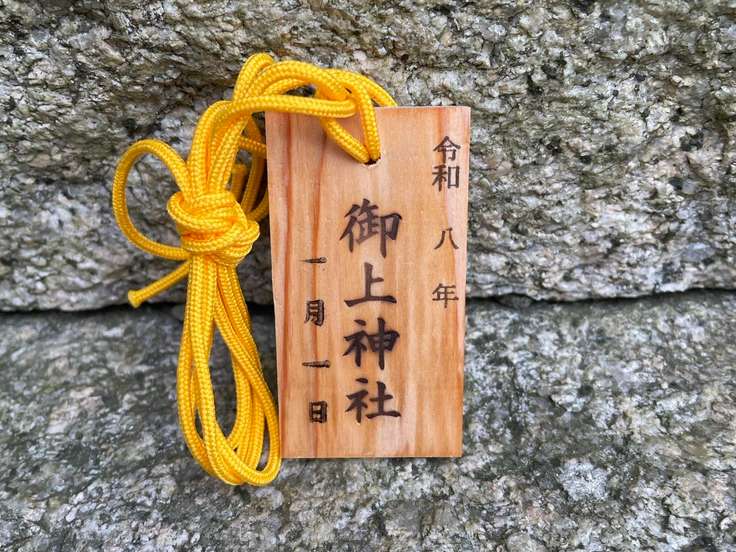 令和八年
御上神社
一月一日